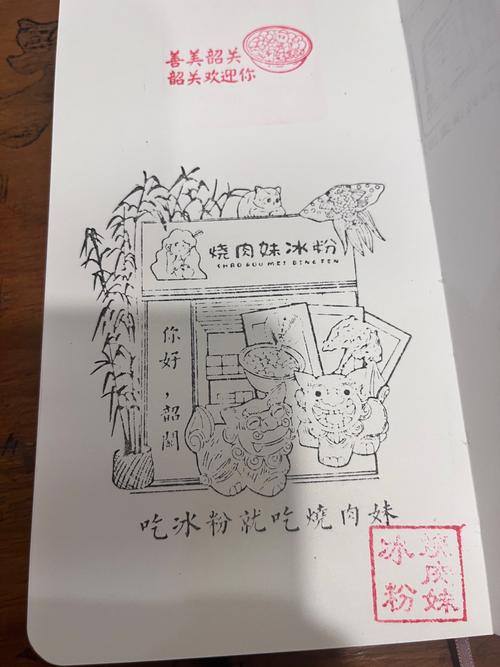 善美韶关
韶关欢迎你
烧肉妹冰粉
SHAO ROU MEI BING FEN
你好，韶關
吃冰粉就吃燒肉妹
燒肉妹
冰粉